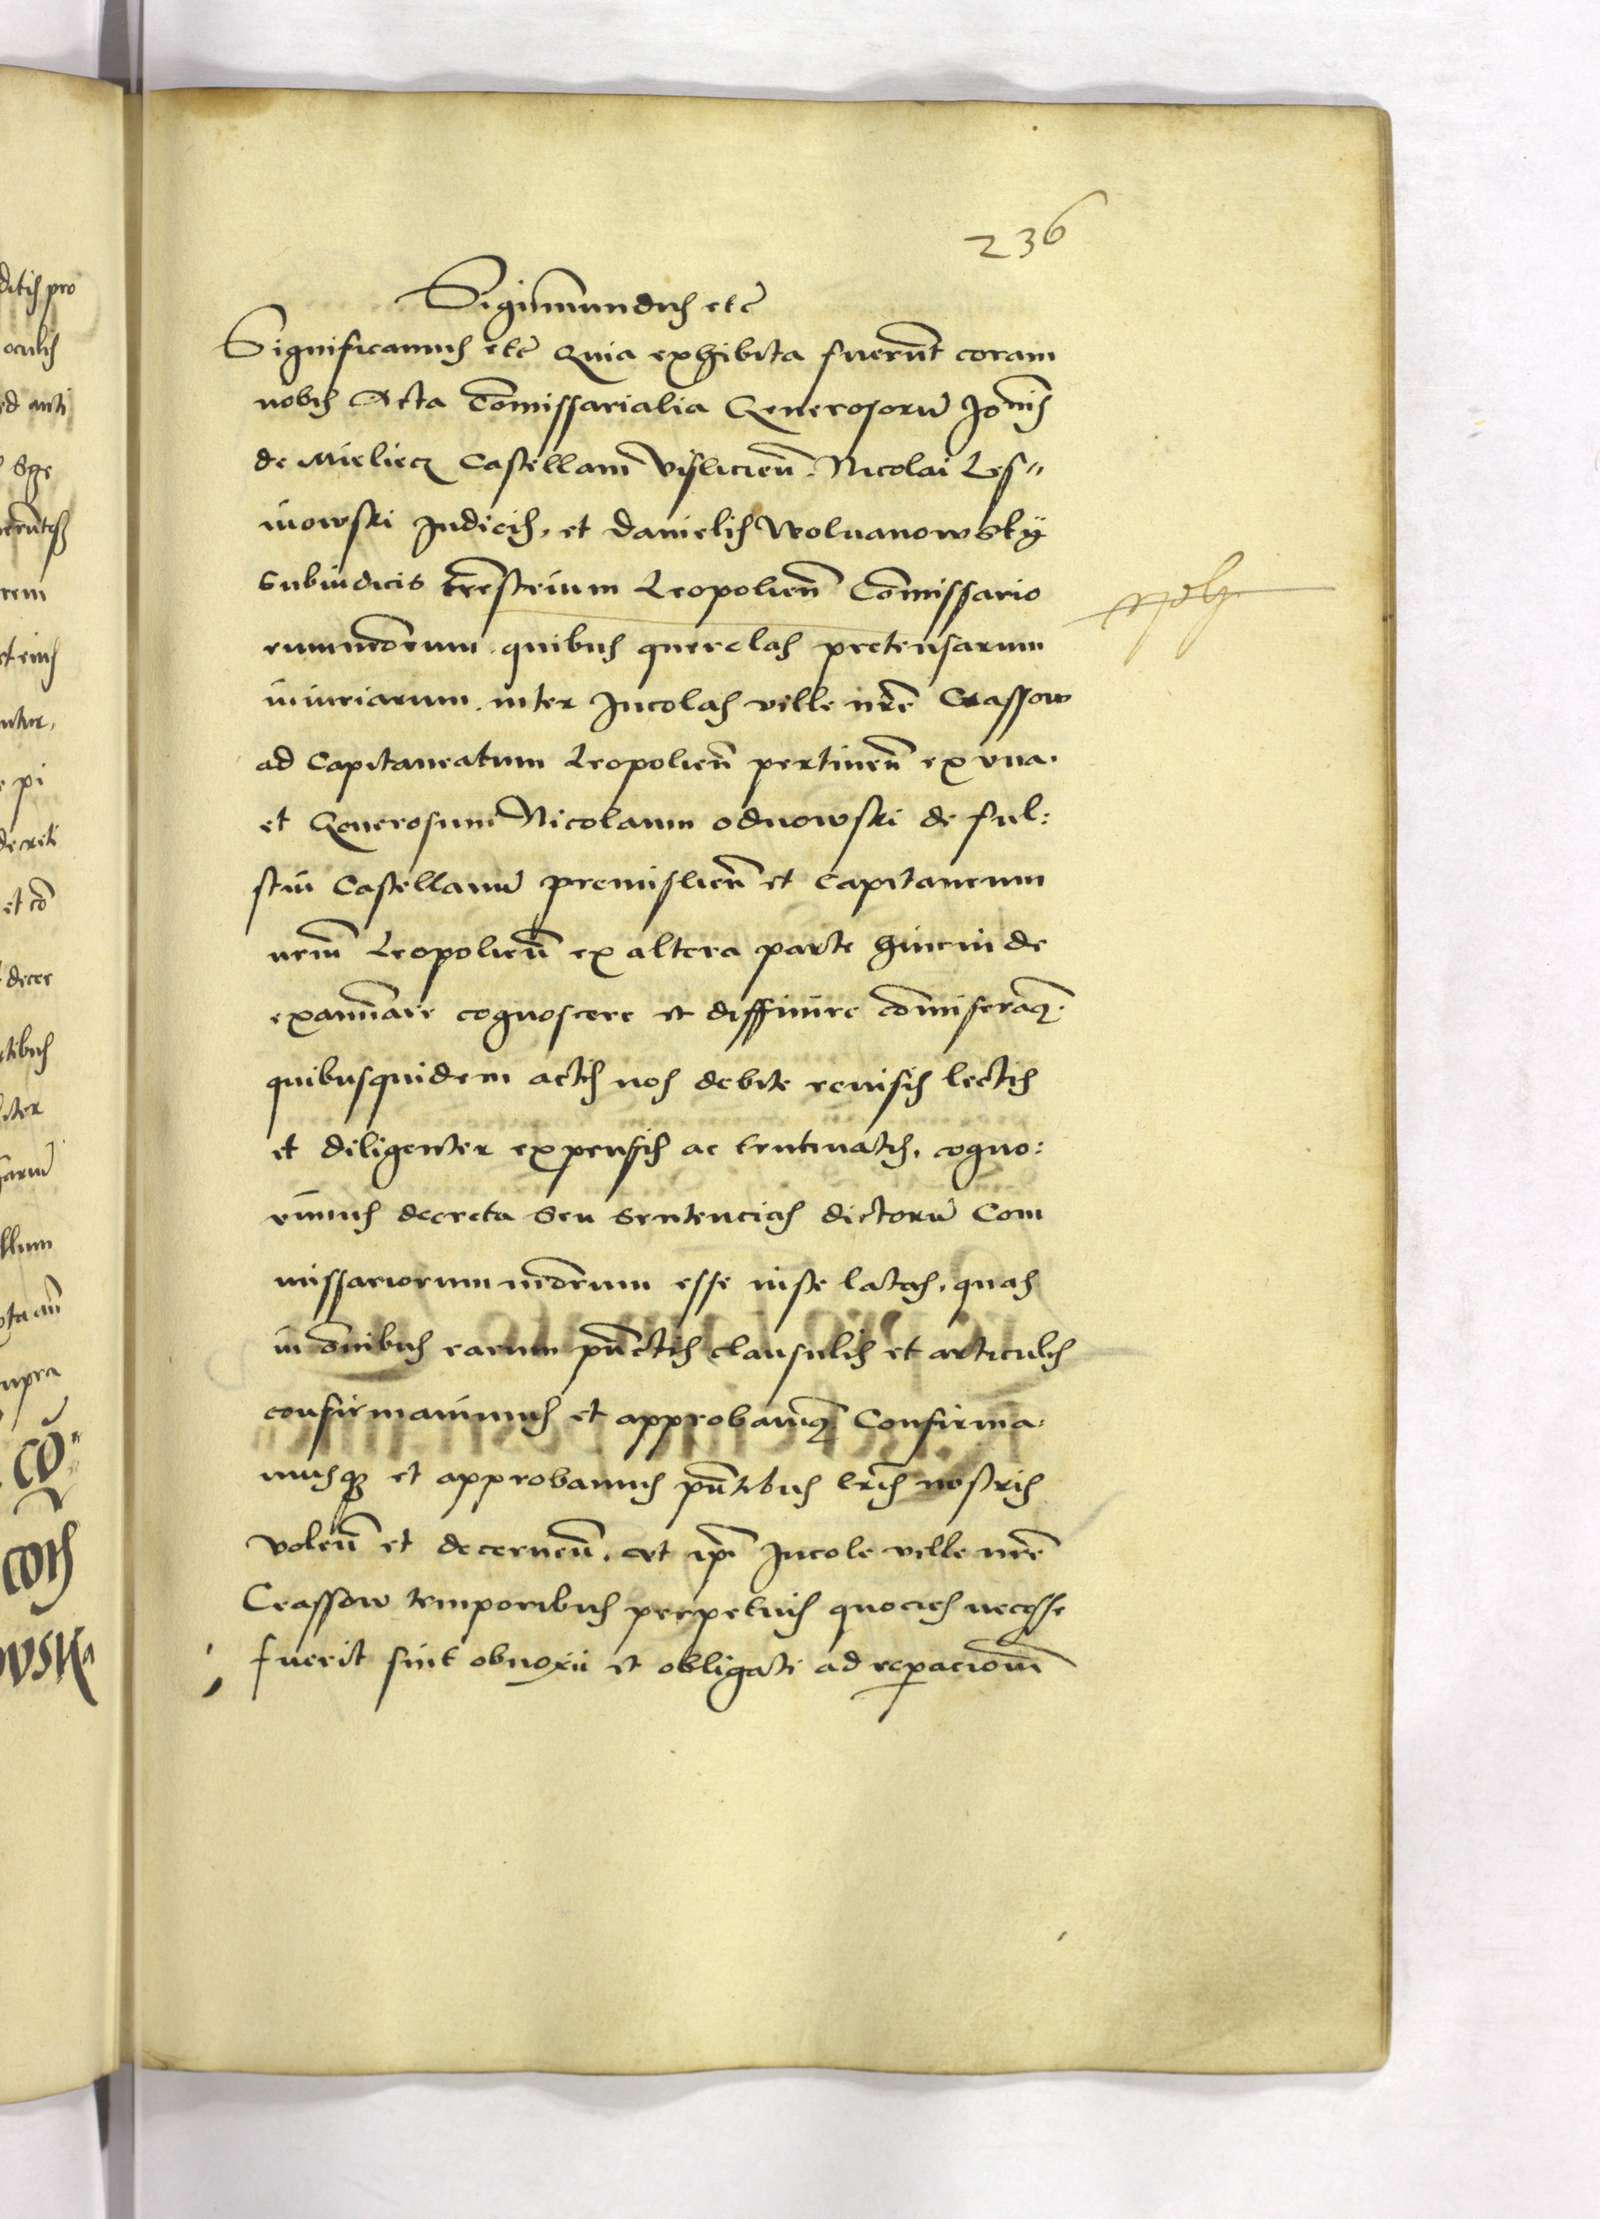 236
Sigismundus etc̃
Significamus etc̃ Quia exhibita fuerũt coram
nobis Acta Com̃issarialia Generosorũ Joñis
de Mieliecz Castellani Visliciẽn. Nicolai Les„
niowski Judicis, et Danielis Woluanowsky
Subiudicis trẽstrium Leopoliẽn Com̃issario
rum nr̃orum. quibus querelas pretensarum
iniuriarum. inter Incolas ville nr̃e Crassow
ad Capitaneatum Leopoliẽn pertineñ ex vna.
et Generosum Nicolaum odnowski de ful:
stin Castellanũ premisliẽn et Capitaneum
nr̃m Leopoliẽn ex altera parte hincinde
examĩare cognoscere et diffinire com̃iseraq̃.
quibusquidem actis nos debite reuisis lectis
et diligenter expensis ac trutinatis, cogno:
uimus decreta seu sentencias dictorũ Com
missariorum nr̃orum esse iuste latas, quas
in om̃ibus earum pũctis clausulis et articulis
confirmauimus et approbauiq̃ Confirma.
musq̃ et approbamus pñtibus lr̃is nostris
voleñ et decerneñ. vt ip̃i Incole ville nr̃e
Crassow temporibus perpetuis quocies necesse
fuerit sint obnoxii et obligati ad repacionẽ
ditis pro
oculis
et eius
decreti
et cõ
decer
supra